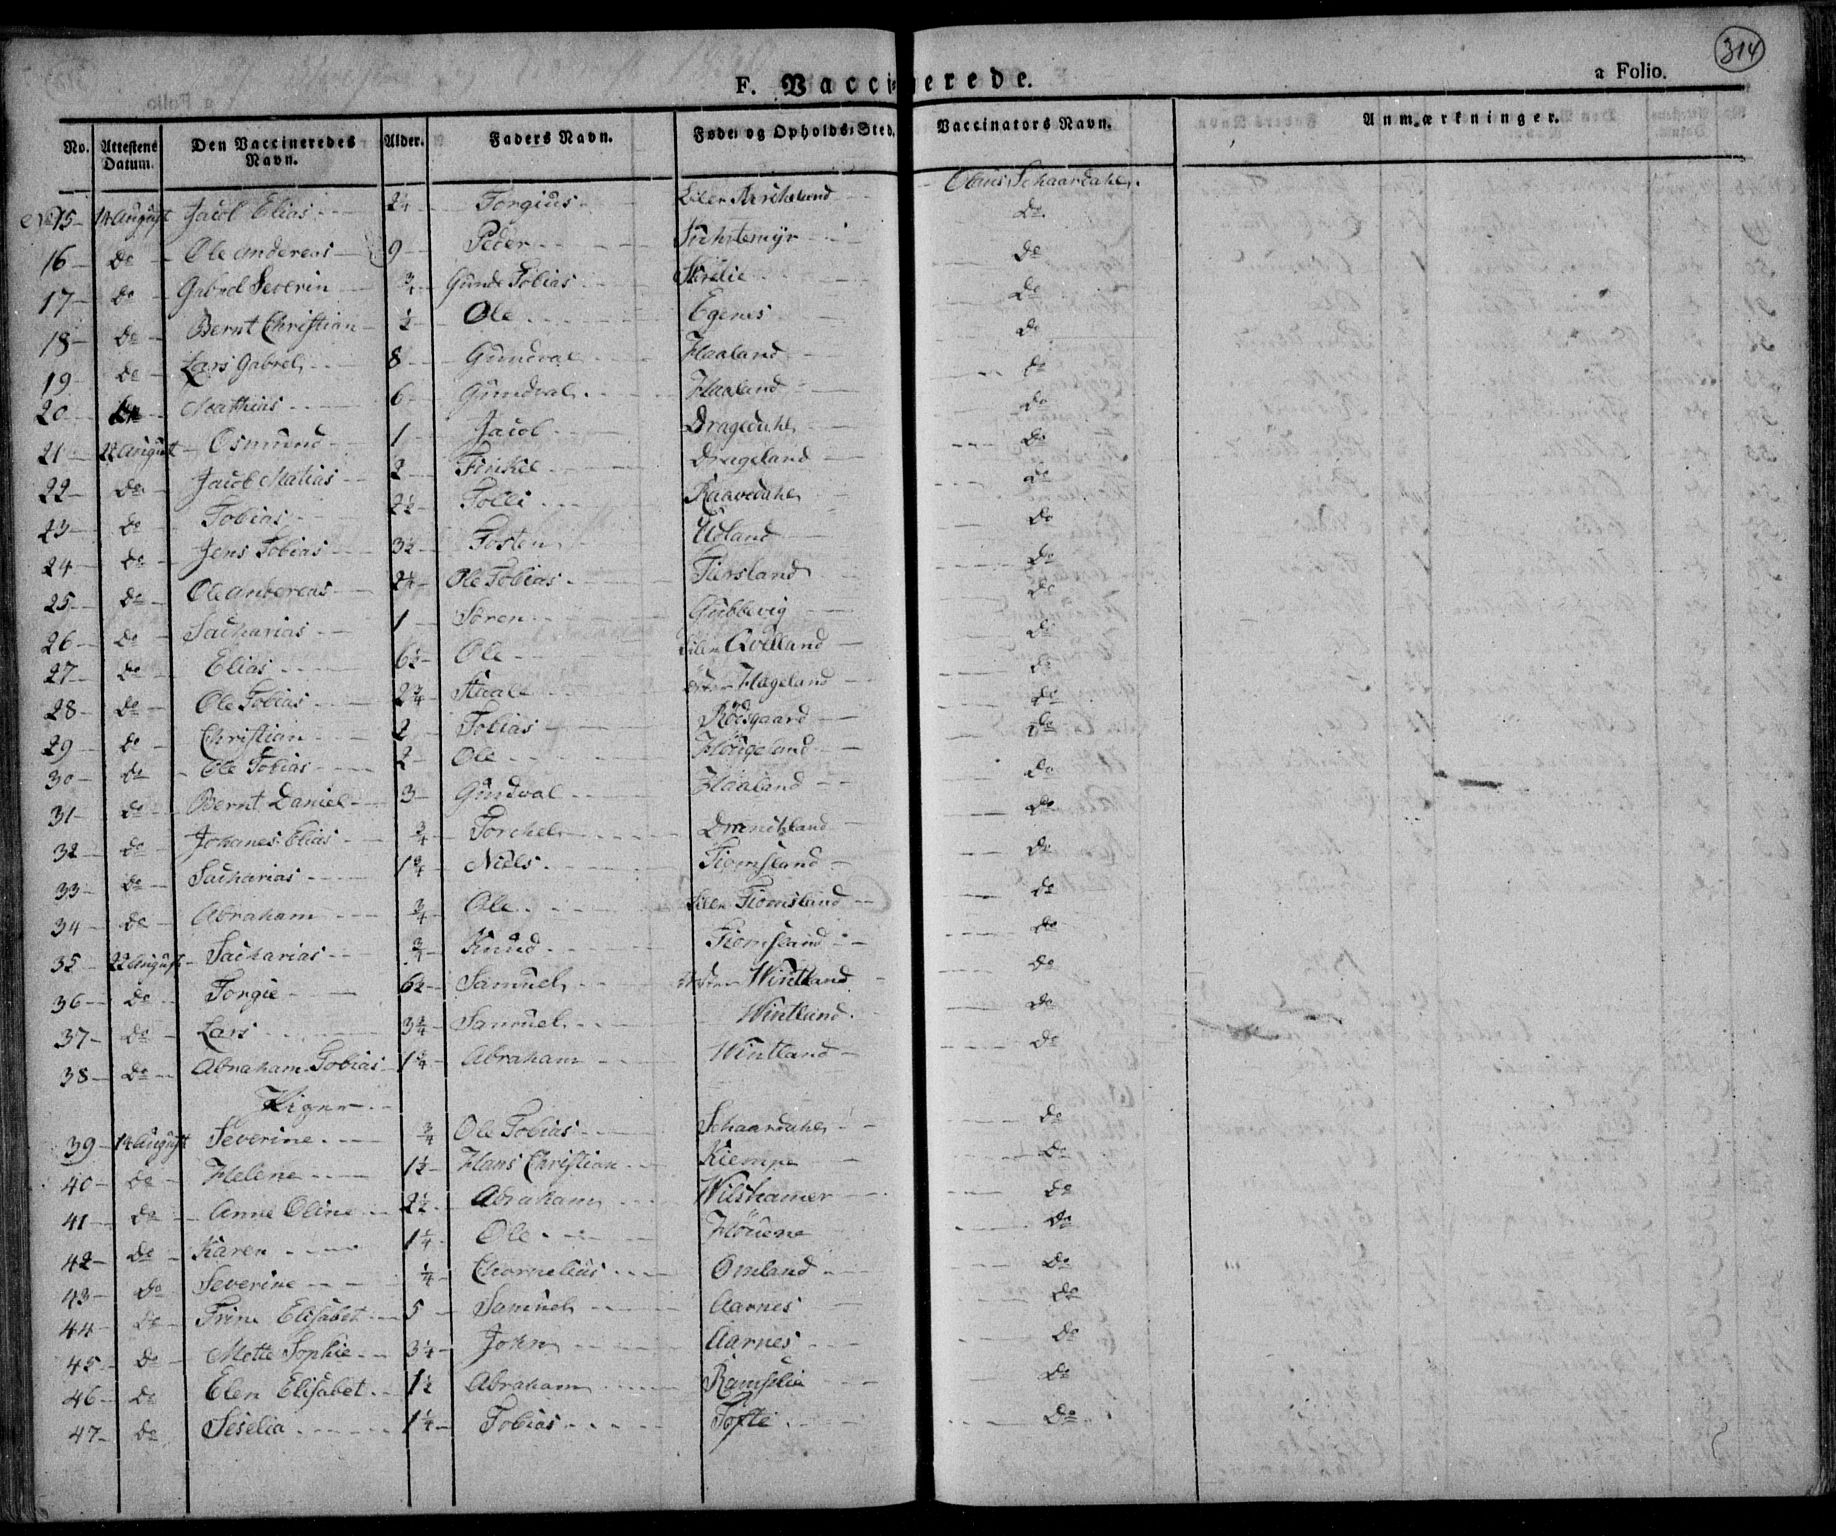 314
F. Vaccinerede.
a Folio.
No. Attestens Datum. Den Vaccineredes Navn. Alder. Faders Navn. Føde- og Opholds-Sted. Vaccinators Navn. Anmærkninger.
15 14 August Jacob Elias 2¼ Torgius Lille Schaardahl.
16 do Ole Andereas 9 Peder do
17 do Gabrel Severin ¾ Gunde Tobias do
18 do Bernt Christian ½ Ole Egenes do
19 do Lars Gabrel 8 Gundval Haaland do
20 do Mathias 6 Gundval Haaland do
21 22 August Osmund 1 Jacob Dragedahl do
22 do Jacob Matias 2 Tinkel Drageland do
23 do Tobias 2½ Tolli do
24 do Jens Tobias 3½ Tosten Udland do
25 do Ole Andereas Ole Tobias Tiersland do
26 do Sacharias 1 Sören Gubbevig do
27 do Elias 6½ Ole Lille Qvelland do
28 do Ole Tobias 2¾ Hageland do
29 do Christian 2 Tobias Rödsgaard do
30 do Ole Tobias 2 Ole Hougeland do
31 do Bernt Daniel 3 Gundval Haaland do
32 do Johanes Elias ¾ Torchel do
33 do Sacharias 1¾ Niels Fiomsland do
34 do Abraham ¾ Ole Lille Fiomsland do
35 22 August Sacharias ¾ Knud Fiomsland do
36 do Torgie 6½ Samuel Wintland do
37 do Lars 3¾ Samuel Wintland do
38 do Abraham Tobias 1¾ Abraham Wintland do
Piger
39 14 August Severine ¾ Ole Tobias Schaardahl do
40 do Helene 1½ Hans Christian Kiempe do
41 do Anne Oline 2½ Abraham Wilshamer do
42 do Karen 1¼ Ole do
43 do Severine ¼ Chornelius Omland do
44 do Trine Elisabet 5 Samuel Aarnes do
45 do Mette Sophie 3¼ John Aarnes do
46 do Elen Elisabet 1½ Abraham Ramslia do
47 do Seselia 1¼ Tobias Tofte do